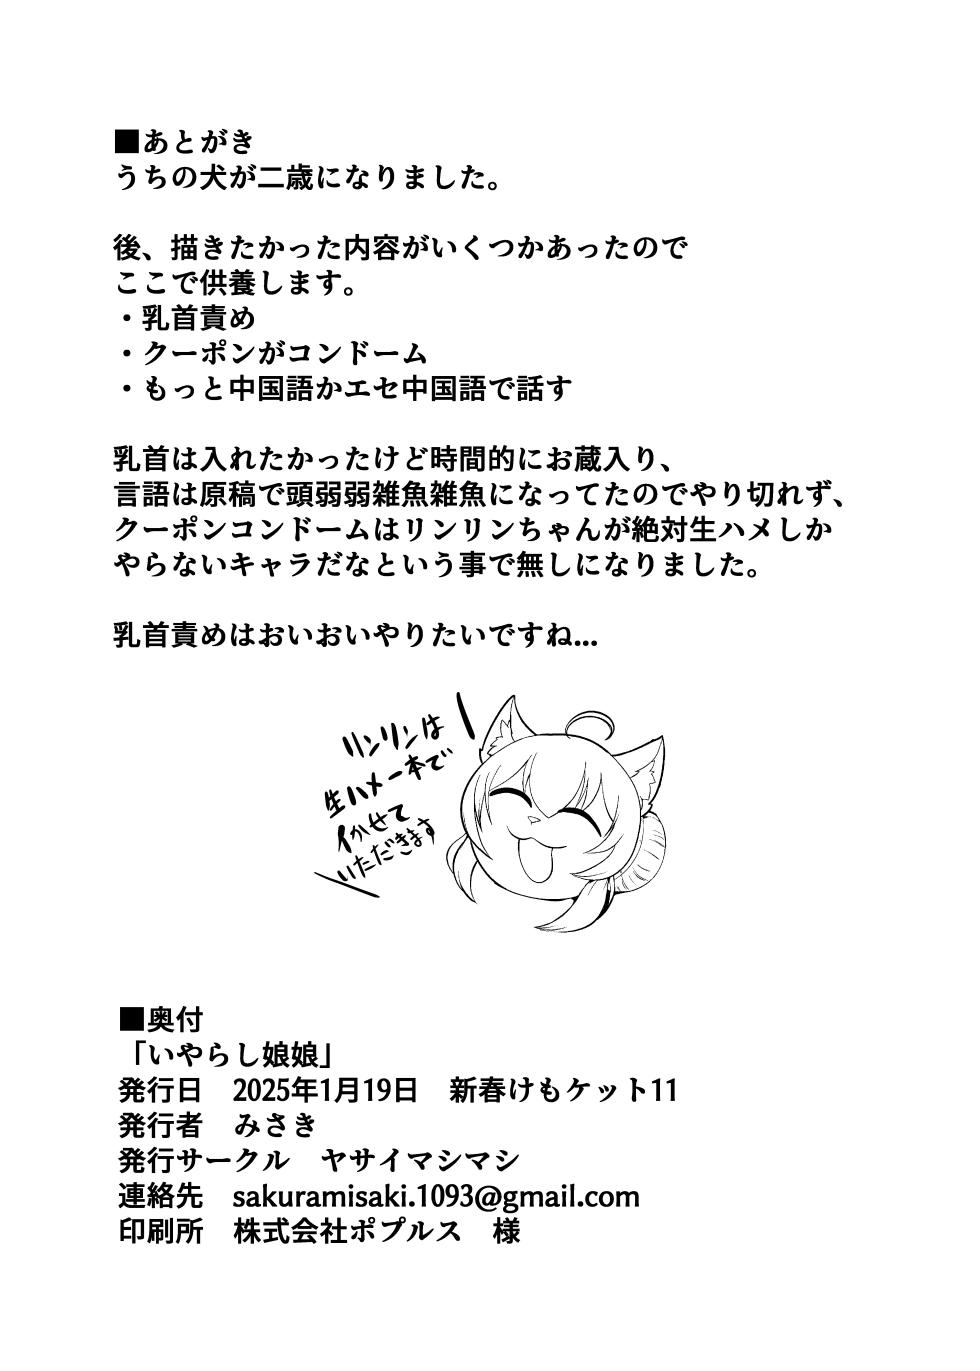 ■あとがき
うちの犬が二歳になりました。
後、描きたかった内容がいくつかあったので
ここで供養します。
・乳首責め
・クーポンがコンドーム
・もっと中国語かエセ中国語で話す
乳首は入れたかったけど時間的にお蔵入り、
言語は原稿で頭弱弱雑魚雑魚になってたのでやり切れず、
クーポンコンドームはリンリンちゃんが絶対生ハメしか
やらないキャラだなという事で無しになりました。
乳首責めはおいおいやりたいですね...
リンリンは
生ハメ一本で
イかせて
いただきます
■奥付
「いやらし娘娘」
発行日　2025年1月19日　新春けもケット11
発行者　みさき
発行サークル　ヤサイマシマシ
連絡先　sakuramisaki.1093@gmail.com
印刷所　株式会社ポプルス　様